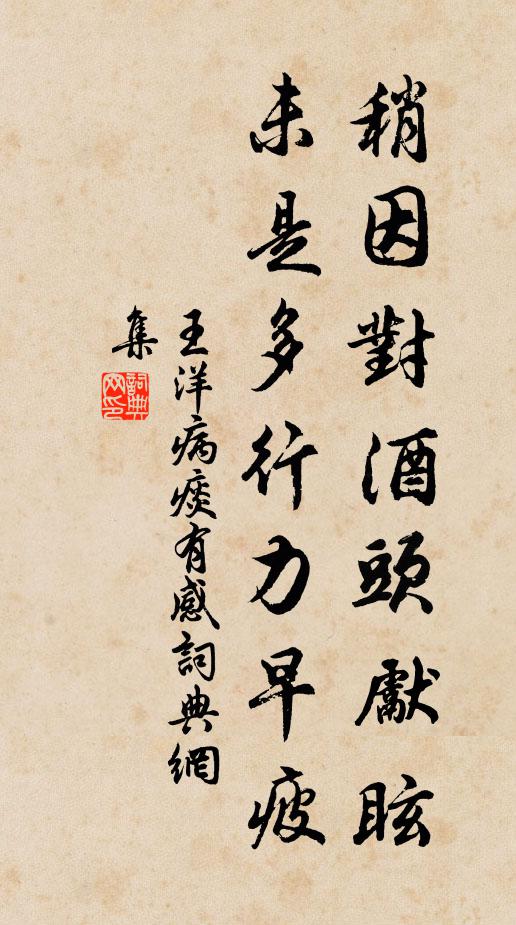 稍因對酒頭獻眩
未是多行力早疲
王洋病痰有感詞典網
集
詞典網印